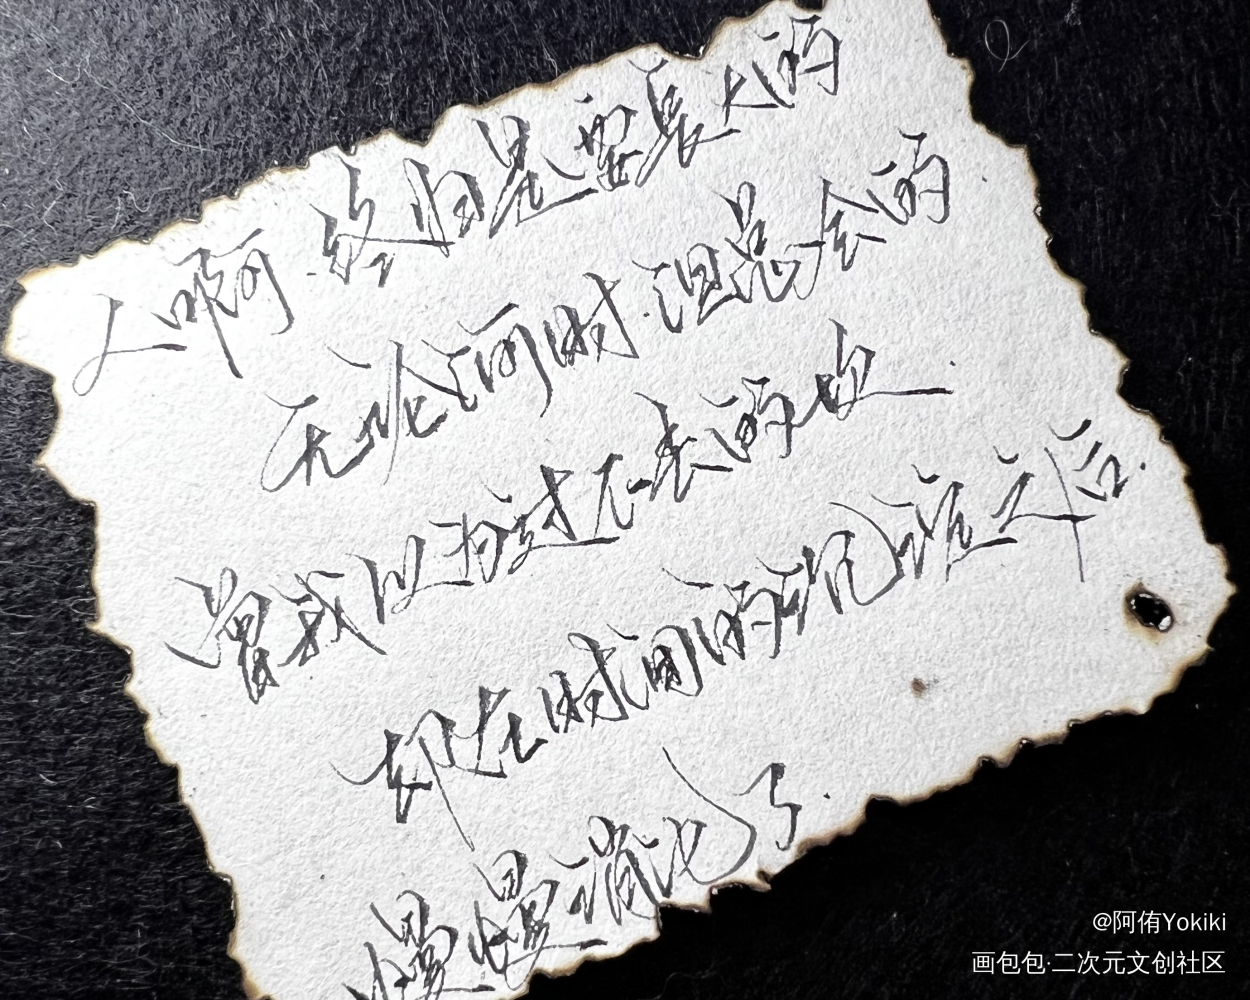 人啊.终归是要长大的
无论何时.但总会的
曾我以为过不去的坎.
却在时间的沉淀之后.
慢慢消化了.
@阿侑Yokiki
画包包·二次元文创社区